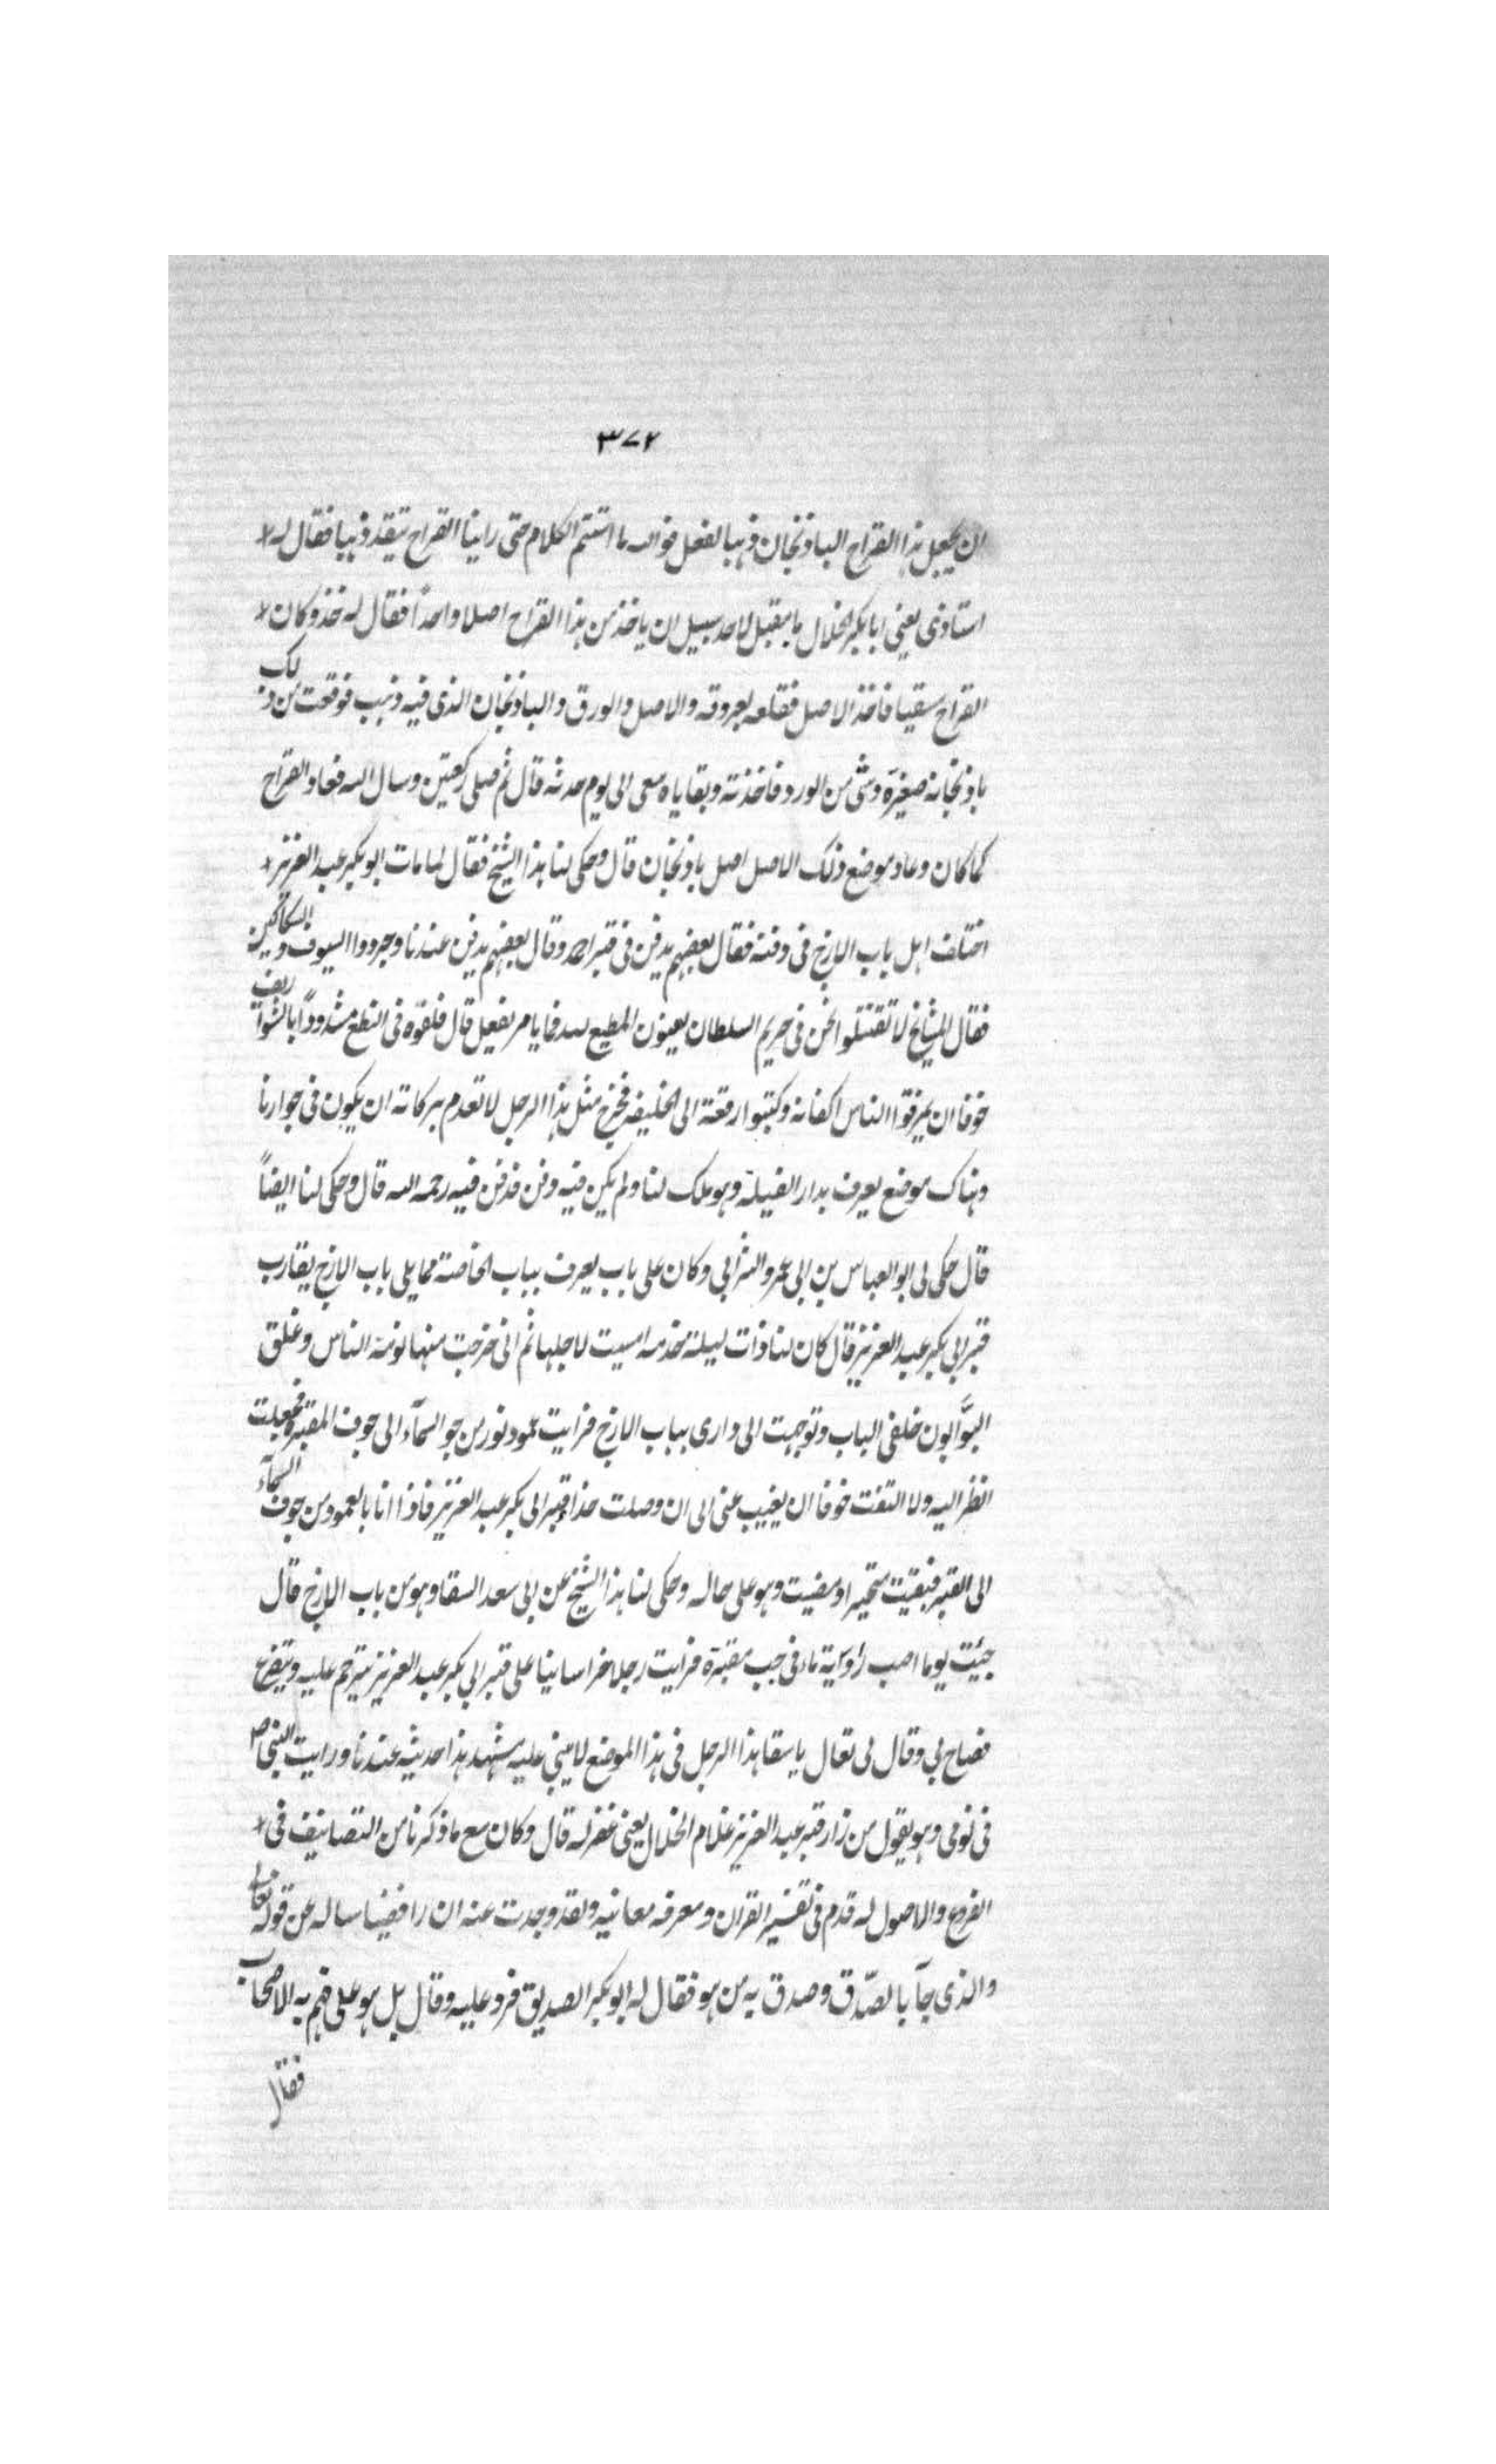 ٣٧٢
ان يجعل هذا القراح الباذنجان ذهبا لفعل فوالله ما استتم الكلام حتى راينا القراح يتقد ذهبا فقال له
استاذى يعنى ابا بكر الخلال يا مقبل لاحد سبيل ان ياخذ من هذا القراح اصلا واحداً فقال له خذ وكان
القراح سقيا فاخذ الاصل فقلعه بعروقه والاصل والورق والباذنجان الذى فيه ذهب فوقعت من ذلك
باذنجانة صغيرة وشئ من الورد فاخذته وبقاياه معى الى يوم حدثه قال ثم صلى ركعتين وسال الله فعاد القراح
كما كان وعاد موضع ذلك الاصل اصل باذنجان قال وحكى لنا هذا الشيخ فقال لما مات ابو بكر عبد العزيز
اختلف اهل باب الازج فى دفنه فقال بعضهم يدفن فى قبر احمد وقال بعضهم يدفن عندنا وجردوا السيوف والسكاكين
فقال المشايخ لا تقتتلوا نحن فى حريم السلطان يعنون المطيع لله فما يامر نفعل قال فلفوه فى النطع مشدوداً بالشواريف
خوفا ان يمزقوا الناس اكفانه وكتبوا رقعة الى الخليفه فخرج مثل هذا الرجل لا تعدم بركاته ان يكون فى جوارنا
وهناك موضع يعرف بدار الفيلة وهو ملك لنا ولم يكن فيه دفن فدفن فيه رحمه الله قال وحكى لنا ايضاً
قال حكى لى ابو العباس بن ابى عمرو الشرابى وكان على باب يعرف بباب الخاصة مما يلى باب الازج يقارب
قبر ابى بكر عبد العزيز قال كان لنا ذات ليلة خدمه امسيت لاجلها ثم انى خرجت منها نومة الناس وغلق
البوَّابون خلفى الباب وتوجهت الى دارى بباب الازج فرايت عمود نور من جو السمآء الى جوف المقبرة فجعلت
انظر اليه ولا التفت خوفا ان يغيب عنى الى ان وصلت حذاء قبر ابى بكر عبد العزيز فاذا انا بالعمود من جوف السمآء
الى القبر فبقيت متحيرا ومضيت وهو على حاله وحكى لنا هذا الشيخ عن ابى سعد السقا وهو من باب الازج قال
جيئت يوما اصب راوية ماء فى جب مقبرة فرايت رجلا خراسانيا على قبر ابى بكر عبد العزيز يترحم عليه ويتضرع
فصاح بى وقال لى تعال يا سقا هذا الرجل فى هذا الموضع لا يبنى عليه مشهد هذا حديثه عندنا ورايت النبى ص
فى نومى وهو يقول من زار قبر عبد العزيز غلام الخلال يعنى غفر له قال وكان مع ما ذكرنا من التصانيف فى
الفروع والاصول له قدم فى تفسير القران ومعرفه معانيه ولقد وجدت عنه ان رافضيا ساله عن قوله تعالى
والذى جآ بالصّدق وصدق به من هو فقال له ابو بكر الصديق فرد عليه وقال بل هو على فهم به الاصحاب
فقال